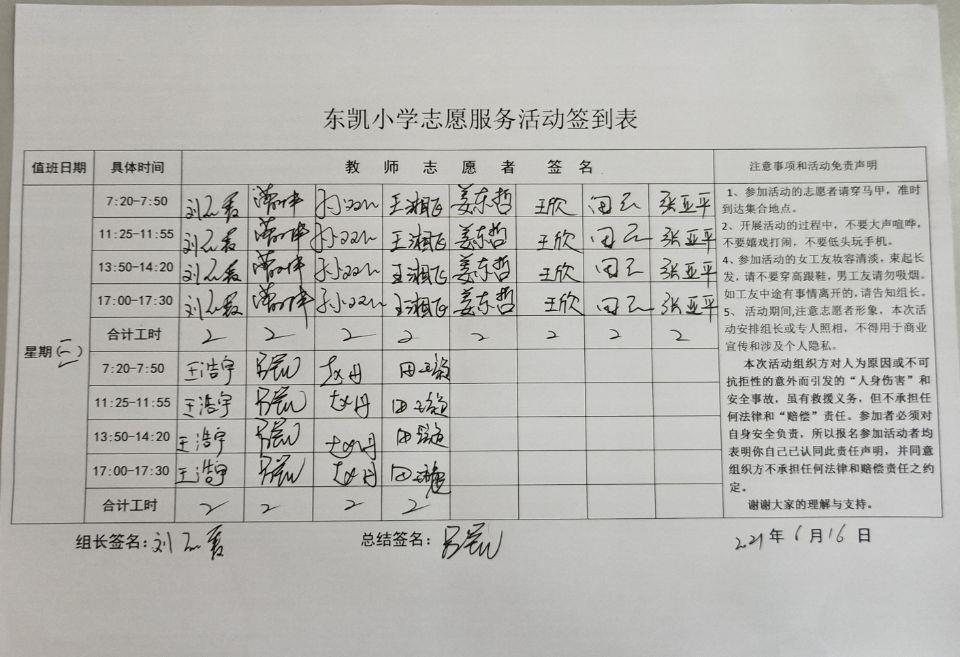 东凯小学志愿服务活动签到表
值班日期 具体时间 教师志愿者签名 注意事项和活动免责声明
7:20-7:50 王湘飞 姜东哲 王欣 田云 张亚平
11:25-11:55 王湘飞 姜东哲 王欣 田云 张亚平
13:50-14:20 王湘飞 姜东哲 王欣 田云 张亚平
17:00-17:30 王湘飞 姜东哲 王欣 田云 张亚平
合计工时 2 2 2 2 2 2 2 2
星期(三)
7:20-7:50 王浩宇 赵丹
11:25-11:55 王浩宇 赵丹
13:50-14:20 王浩宇 赵丹
17:00-17:30 王浩宇 赵丹
合计工时 2 2 2 2
1、参加活动的志愿者请穿马甲，准时
到达集合地点。
2、开展活动的过程中，不要大声喧哗，
不要嬉戏打闹，不要低头玩手机。
4、参加活动的女工友妆容清淡，束起长
发，请不要穿高跟鞋，男工友请勿吸烟。
如工友中途有事情离开的，请告知组长。
5、 活动期间,注意志愿者形象，本次活
动安排组长或专人照相，不得用于商业
宣传和涉及个人隐私。
本次活动组织方对人为原因或不可
抗拒性的意外而引发的“人身伤害”和
安全事故，虽有救援义务，但不承担任
何法律和“赔偿”责任。参加者必须对
自身安全负责，所以报名参加活动者均
表明你自己已认同此责任声明，并同意
组织方不承担任何法律和赔偿责任之约
定。
谢谢大家的理解与支持。
组长签名： 总结签名： 2021年6月16日